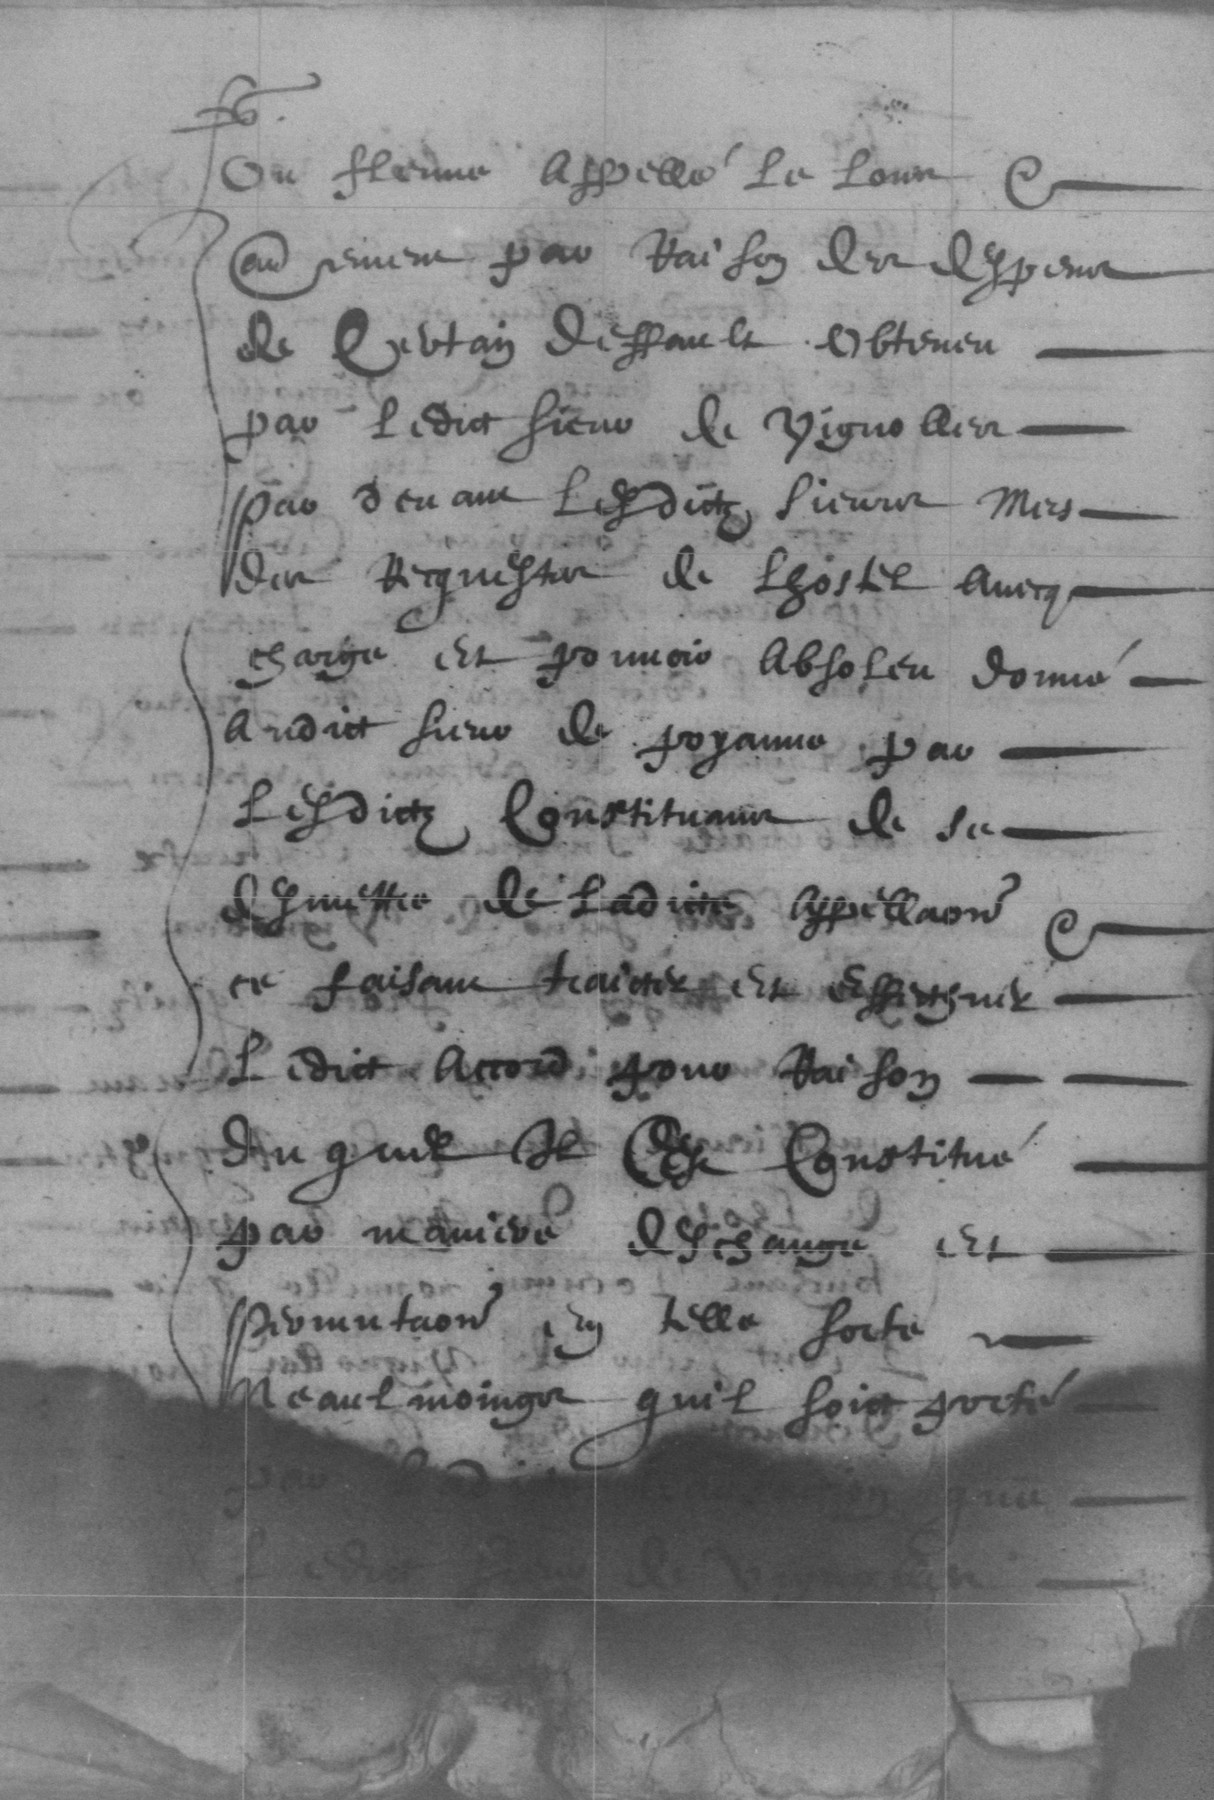 Ou fleuve appellé le louts &
au renvoy par Raison des despens
de Certain deffault obteneu
par ledict sieur de Vignolles
par devant lesdictz sieurs Mes
des Requestes de lhostel avecq
charge et pouvoir absoleu donné
audict sieur de poyanne par
lesdictz Constituans de se
desmettre de ladicte appellaon
ce faisant traicter et effectuer
ledict accord pour Raison
du quel Il Est Constitué
par maniere deschange et
permutaon en telle sorte
Neaulmoinges quil soict porté
que
Ledict sieur de